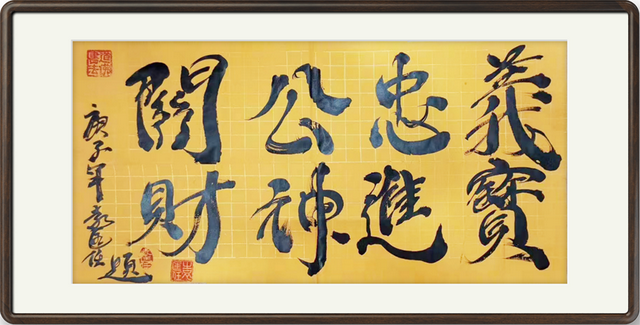 關公忠義
財神進寶
庚子年
題